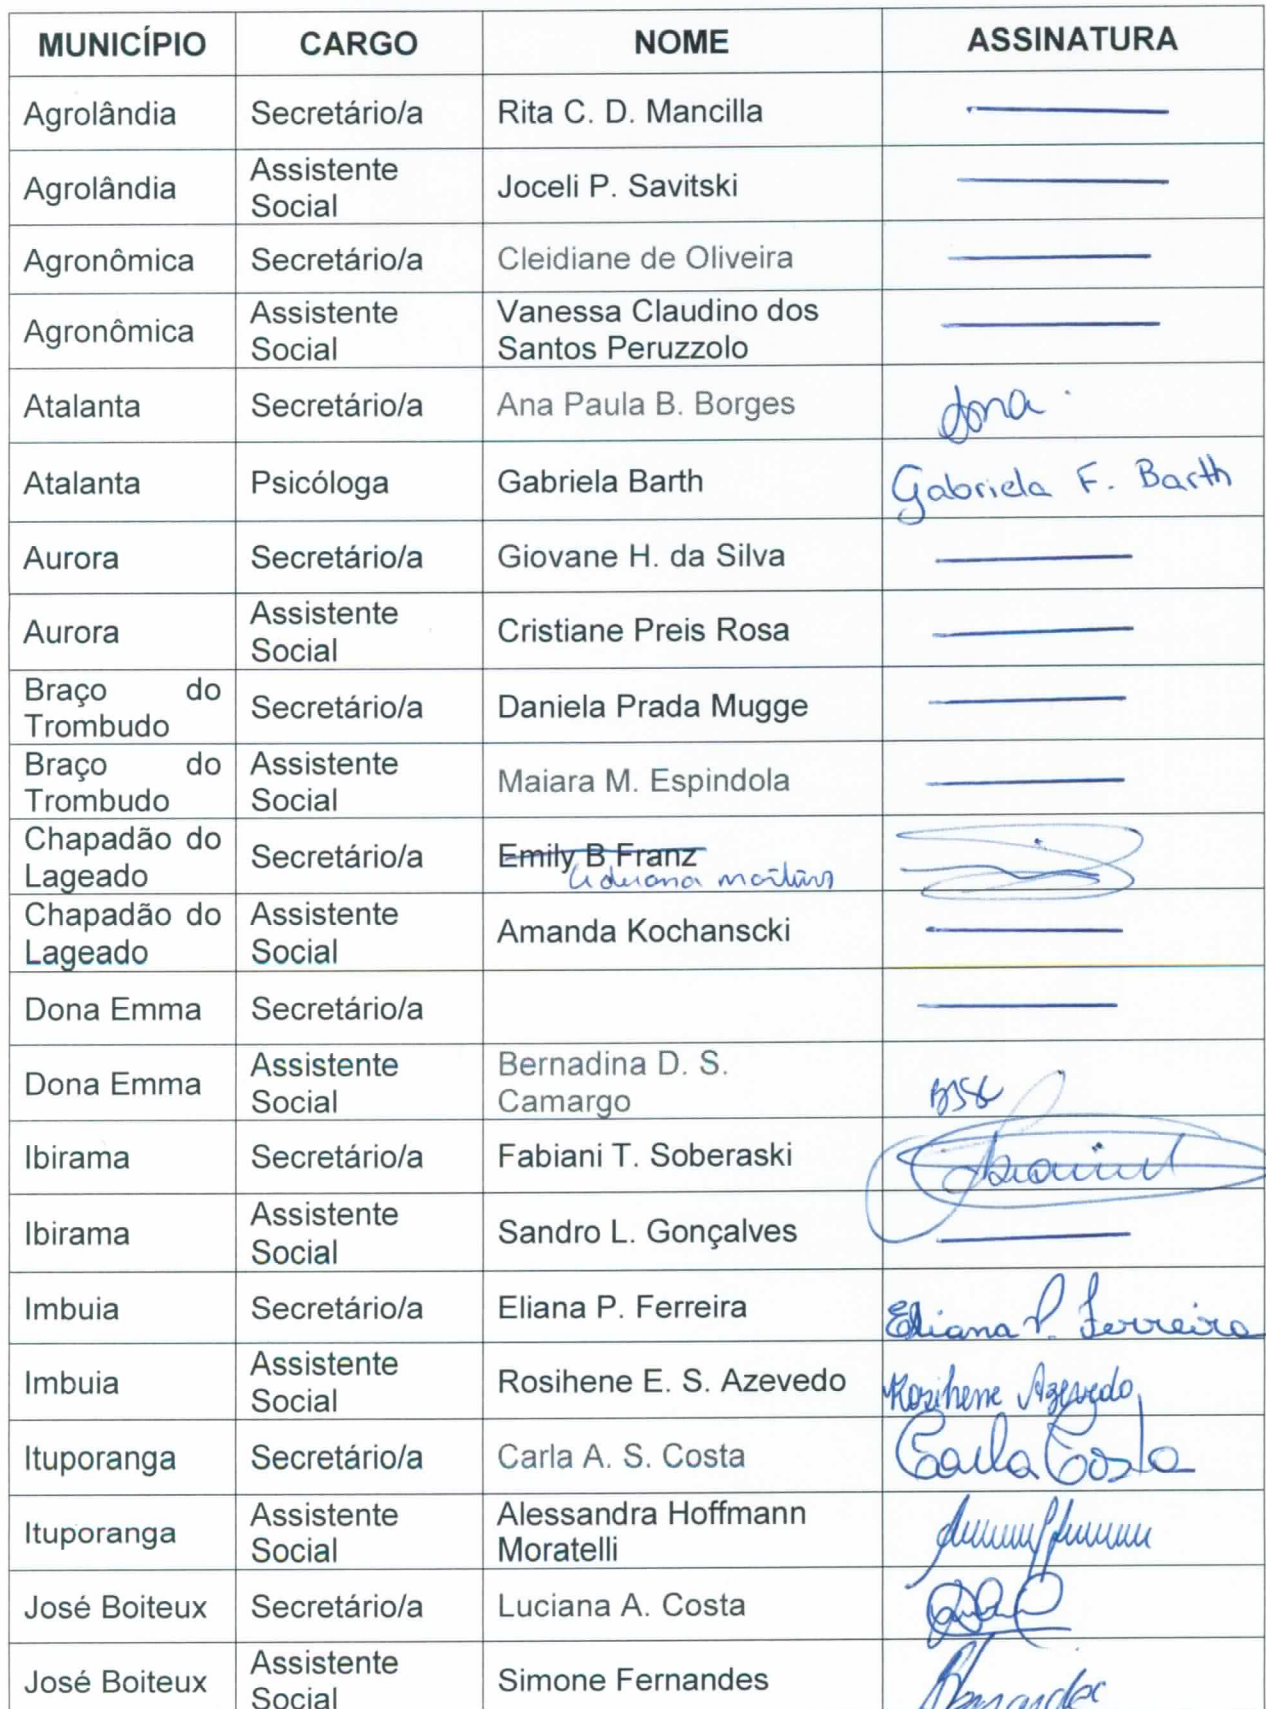 MUNICÍPIO CARGO NOME ASSINATURA
Agrolândia Secretário/a Rita C. D. Mancilla
Agrolândia Assistente Social Joceli P. Savitski
Agronômica Secretário/a Cleidiane de Oliveira
Agronômica Assistente Social Vanessa Claudino dos Santos Peruzzolo
Atalanta Secretário/a Ana Paula B. Borges
Atalanta Psicóloga Gabriela Barth Gabriela F. Barth
Aurora Secretário/a Giovane H. da Silva
Aurora Assistente Social Cristiane Preis Rosa
Braço do Trombudo Secretário/a Daniela Prada Mugge
Braço do Trombudo Assistente Social Maiara M. Espindola
Chapadão do Lageado Secretário/a Emily B Franz
Chapadão do Lageado Assistente Social Amanda Kochanscki
Dona Emma Secretário/a
Dona Emma Assistente Social Bernadina D. S. Camargo
Ibirama Secretário/a Fabiani T. Soberaski
Ibirama Assistente Social Sandro L. Gonçalves
Imbuia Secretário/a Eliana P. Ferreira Eliana P. Ferreira
Imbuia Assistente Social Rosihene E. S. Azevedo Rosihene Azevedo
Ituporanga Secretário/a Carla A. S. Costa Carla Costa
Ituporanga Assistente Social Alessandra Hoffmann Moratelli
José Boiteux Secretário/a Luciana A. Costa
José Boiteux Assistente Social Simone Fernandes